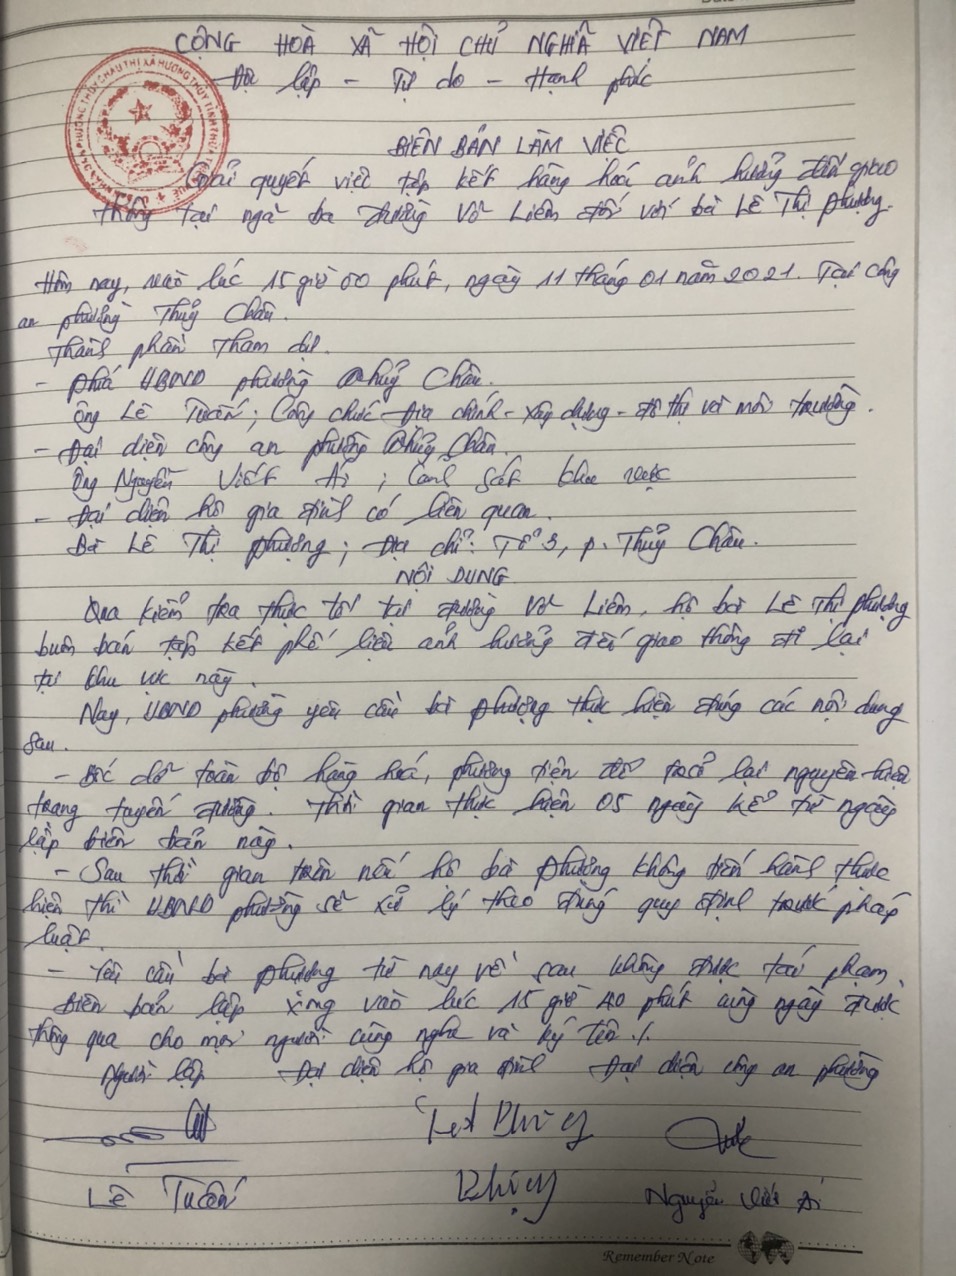 CỘNG HOÀ XÃ HỘI CHỦ NGHĨA VIỆT NAM
Độc lập - Tự do - Hạnh phúc
BIÊN BẢN LÀM VIỆC
Giải quyết việc tập kết hàng hoá ảnh hưởng đến giao
thông tại ngã ba đường Võ Liêm đối với bà Lê Thị Phượng.
Hôm nay, vào lúc 15 giờ 00 phút, ngày 11 tháng 01 năm 2021. Tại công
an phường Thuỷ Châu.
Thành phần tham dự.
- Phía UBND phường Thuỷ Châu.
Ông Lê Tuấn; Công chức Địa chính - xây dựng - đô thị và môi trường.
- Đại diện công an phường Thuỷ Châu.
Ông Nguyễn Viết Ái; Cảnh sát khu vực
- Đại diện hộ gia đình có liên quan.
Bà Lê Thị Phượng; Địa chỉ: Tổ 3, p. Thuỷ Châu.
NỘI DUNG
Qua kiểm tra thực tế tại đường Võ Liêm, hộ bà Lê Thị Phượng
buôn bán tập kết phế liệu ảnh hưởng đến giao thông đi lại
tại khu vực này.
Nay, UBND phường yêu cầu bà Phượng thực hiện đúng các nội dung
sau.
- Bốc dỡ toàn bộ hàng hoá, phương tiện để trả lại nguyên hiện
trạng tuyến đường. Thời gian thực hiện 05 ngày kể từ ngày
lập biên bản này.
- Sau thời gian trên nếu hộ bà Phượng không tiến hành thực
hiện thì UBND phường sẽ xử lý theo đúng quy định trước pháp
luật.
- Yêu cầu bà Phượng từ nay về sau không được tái phạm.
Biên bản lập xong vào lúc 15 giờ 40 phút cùng ngày được
thông qua cho mọi người cùng nghe và ký tên ./.
Người lập Đại diện hộ gia đình Đại diện công an phường
Phượng
Lê Tuấn Nguyễn Viết Ái
Remember Note